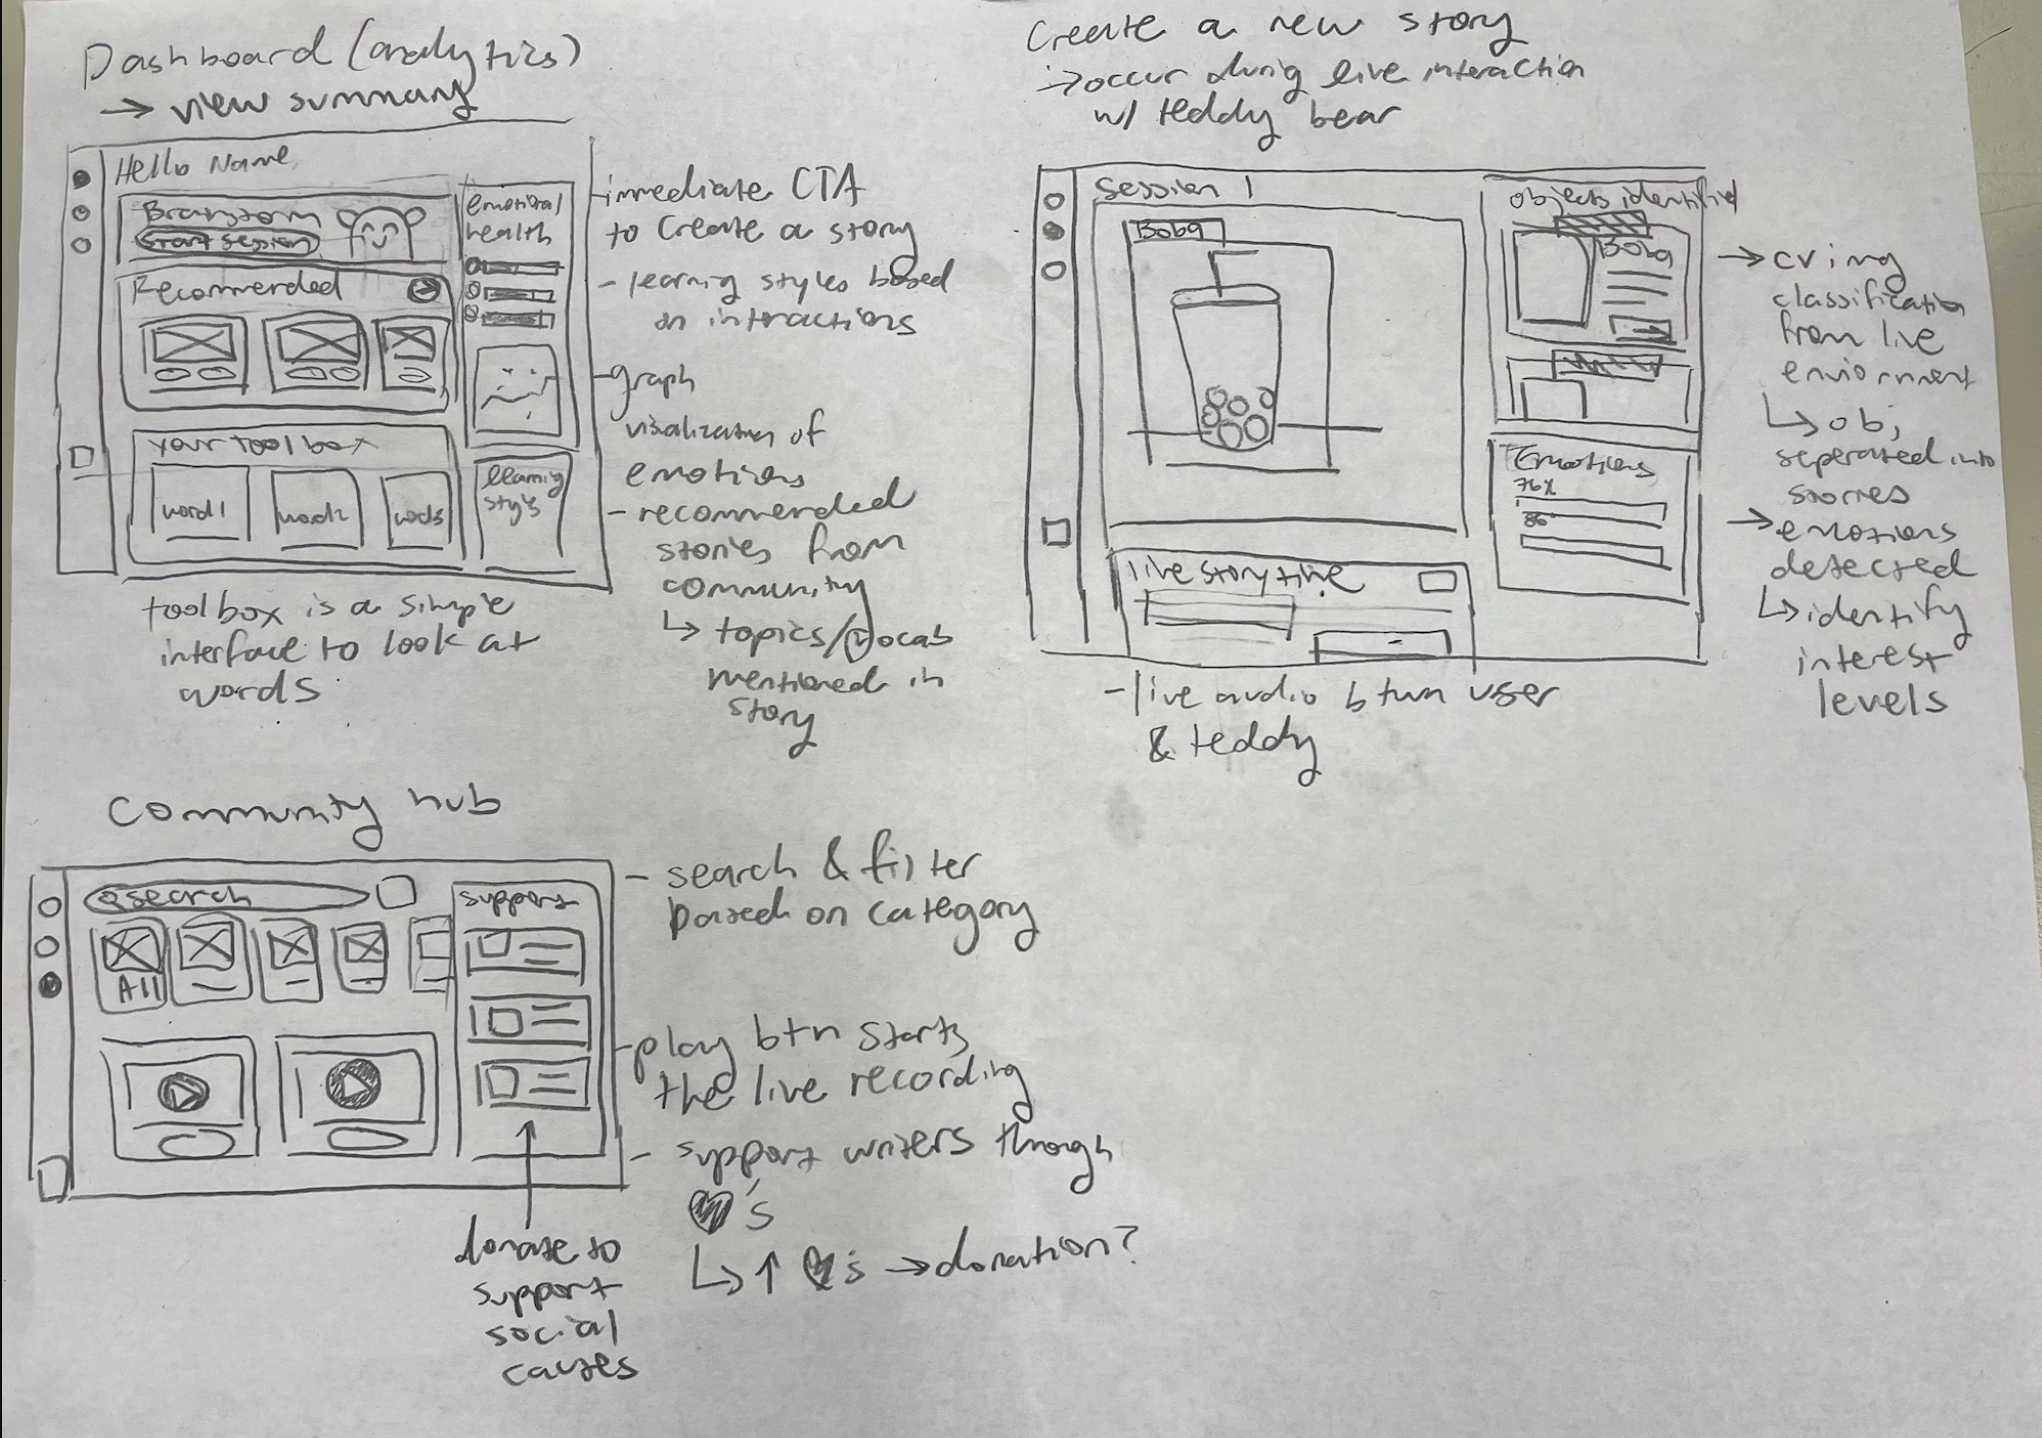 Dashboard (analytics)
→ view summary
Hello Name
Brainstorm
Start session
Recommended
your toolbox
word1
word2
word3
emotional
health
learning
style
- immediate CTA
to create a story
- learning styles based
on interactions
- graph
visualization of
emotions
- recommended
stories from
community
↳ topics/vocab
mentioned in
story
toolbox is a simple
interface to look at
words
Create a new story
→ occur during live interaction
w/ teddy bear
Session 1
Boba
live storytime
objects identified
Boba
Emotions
76%
86
→
classification
from live
enviornment
↳ obj
seperated into
stories
→ emotions
detected
↳ identify
interest
levels
- live audio btwn user
& teddy
Community hub
search
All
support
- search & filter
based on category
- play btn starts
the live recording
- support writers through
♥'s
↳ ↑ ♥'s → donation?
donate to
support
social
causes